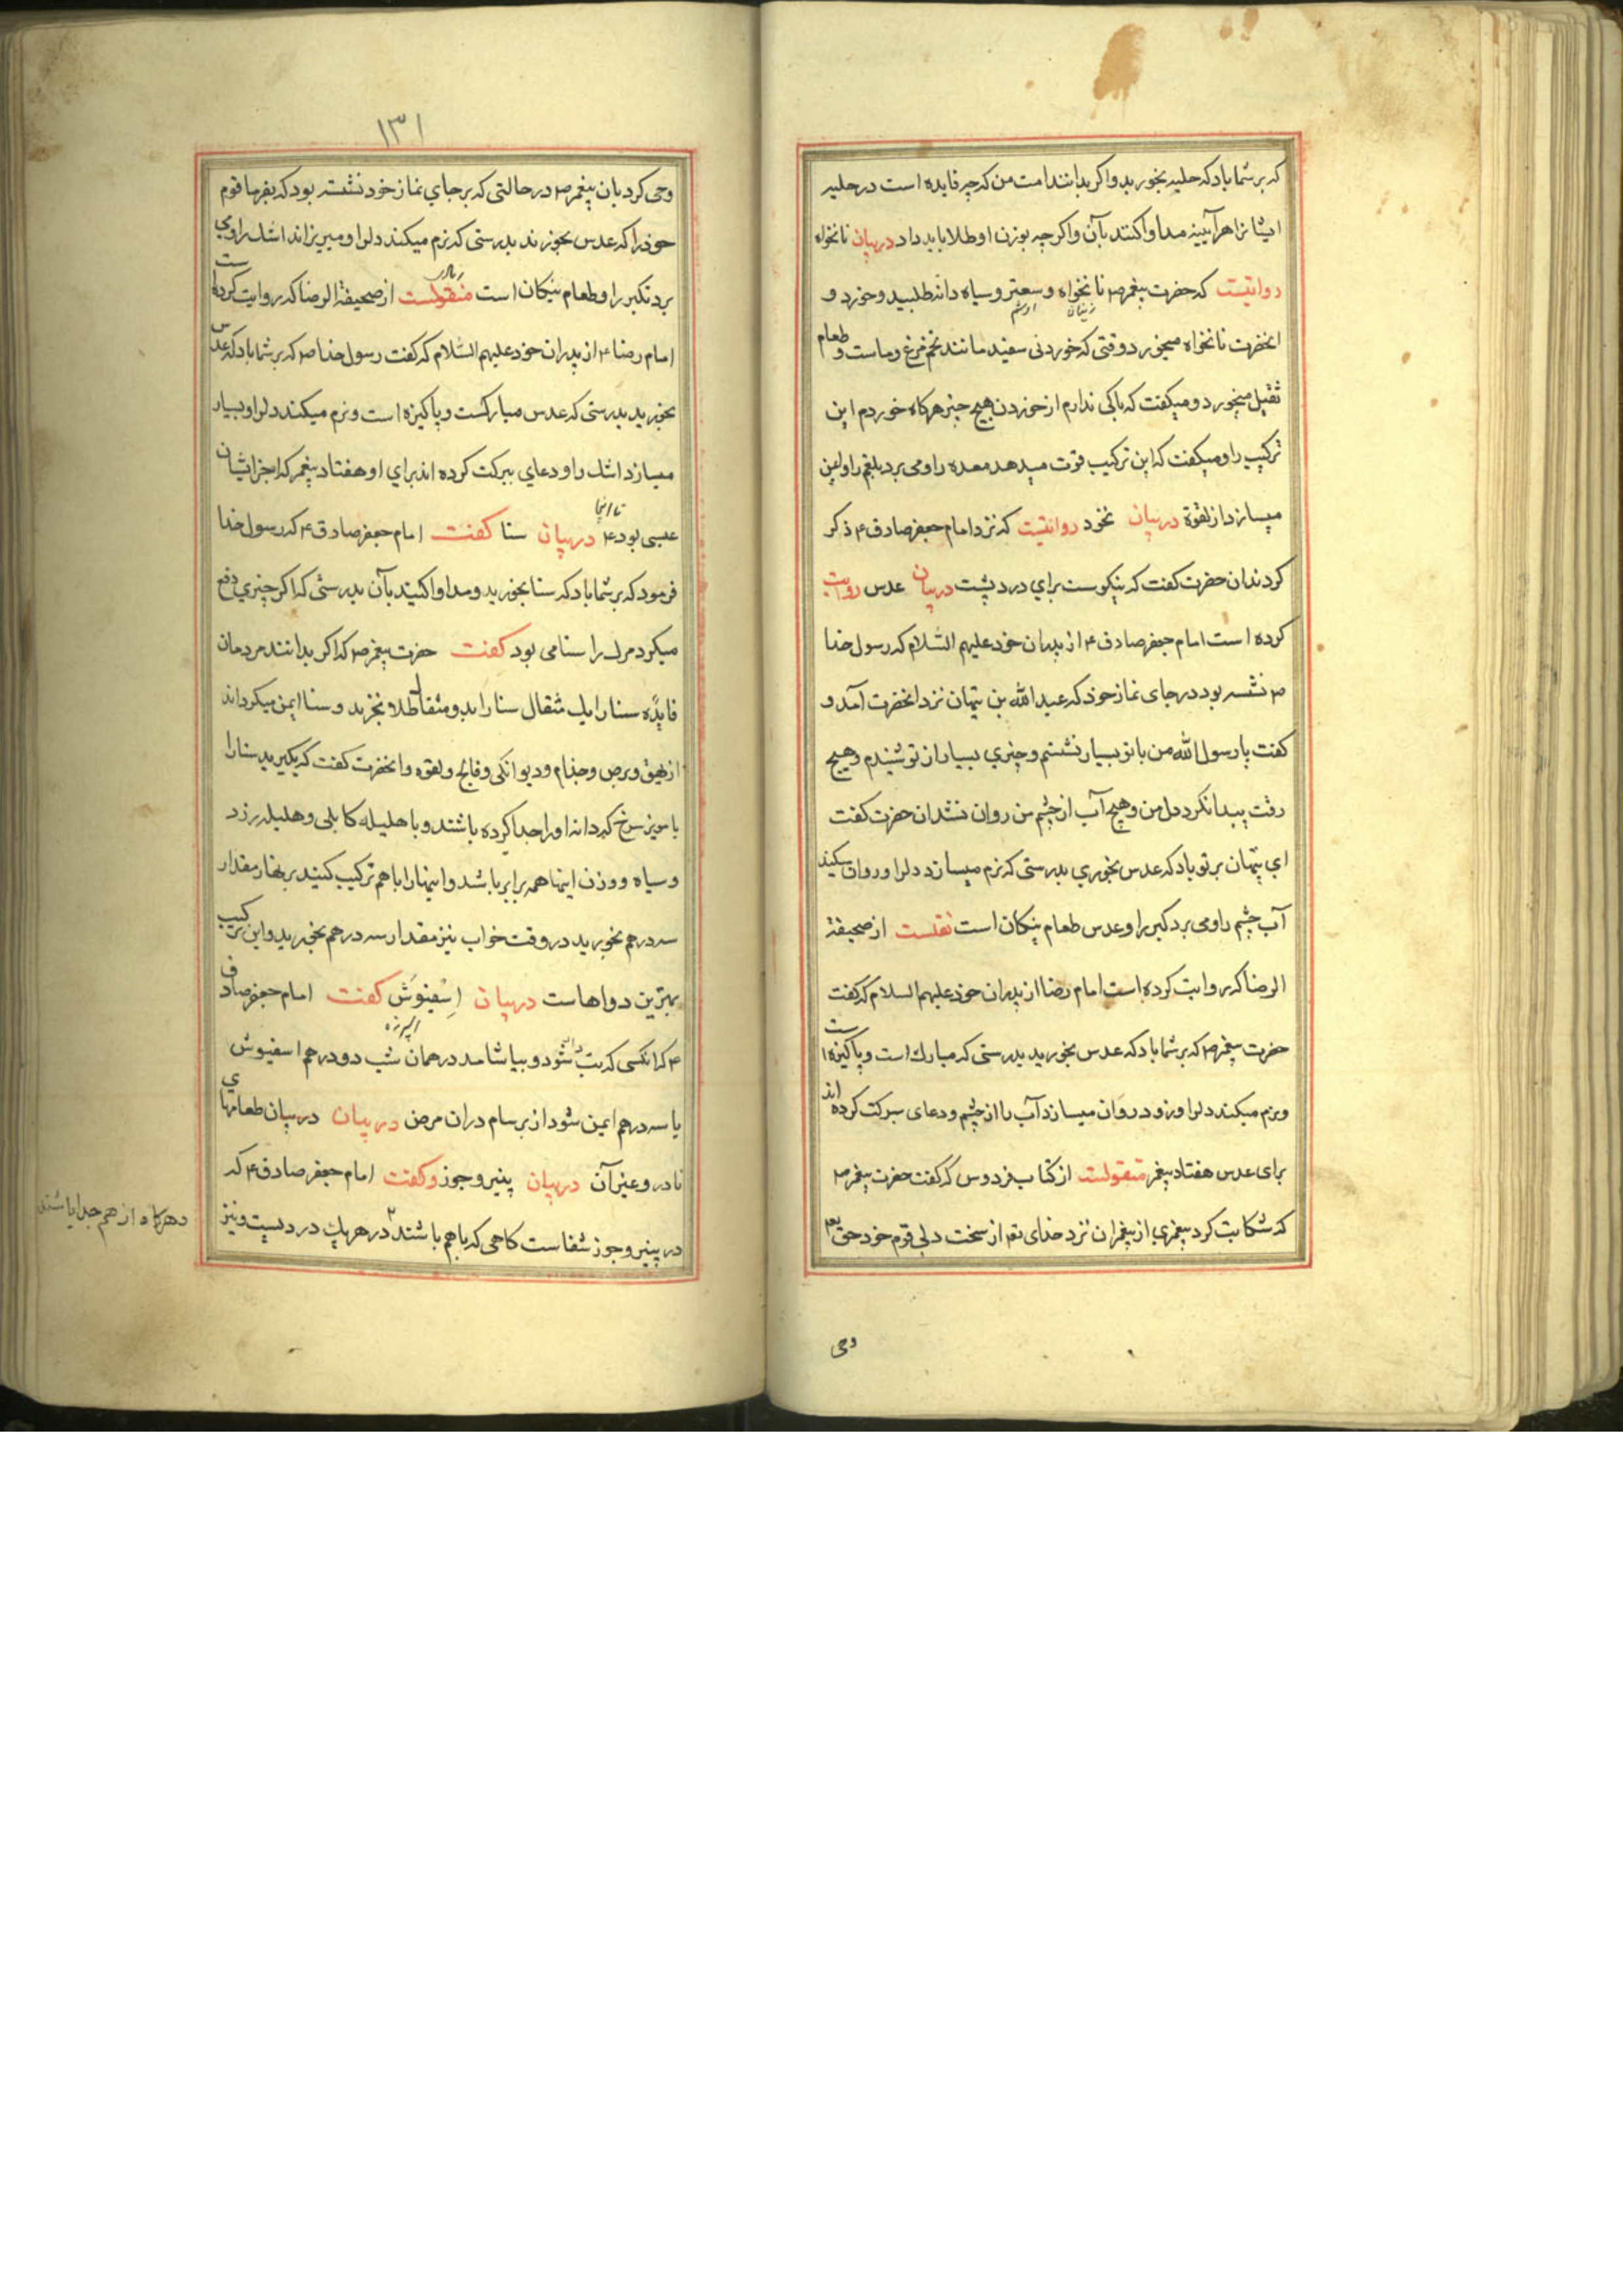 که بر شما باد که حلبه بخورید و اکر بدانند امت من که چه فایده است در حلبه
ایشانرا هرآیینه مداوا کنند بآن و اکر چه بوزن او طلا باید داد در بیان نانخواه
روایتست که حضرت پیغمر ص نانخواه و سعتر و سیاه دانه طلبید و خورد و
انحضرت نانخواه میخورد وقتی که خوردنی سفید مانند تخم مرغ و ماست و طعام
ثقیل میخورد و میکفت که باکی ندارم از خوردن هیچ چیز هرکاه خوردم این
ترکیب را و میکفت که این ترکیب قوت میدهد معده را و می برد بلغم را و ایمن
میسازد از لقوة در بیان نخود روایتست که نزد امام جعفر صادق ع ذکر
کردند ان حضرت کفت که نیکوست برای درد پشت در بیان عدس روایت
کرده است امام جعفر صادق ع از پدران خود علیهم السلام که رسول خدا
ص نشسته بود در جای نماز خود که عبد الله بن تیهان نزد انحضرت آمد و
کفت یا رسول الله من با تو بسیار نشستم و چیزی بسیار از تو شنیدم و هیچ
رقت پیدا نکرد دل من و هیچ آب از چشم من روان نشد ان حضرت کفت
ای تیهان بر تو باد که عدس بخوری بدرستی که نرم میسازد دلرا و روان میکند
آب چشم را و می برد کبر را و عدس طعام نیکان است نقلست از صحیفة
الرضا که روایت کرده است امام رضا از پدران خود علیهم السلام که کفت
حضرت پیغمر ص که بر شما باد که عدس بخورید بدرستی که مبارک است و پاکیزه است
و نرم میکند دلرا و زود روان میسازد آب را از چشم و دعای ببرکت کرده اند
برای عدس هفتاد پیغمر منقولست از کتاب فردوس که کفت حضرت پیغمر ص
که شکایت کرد پیغمری از پیغمران نزد خدای تعم از سخت دلی قوم خود حق تعم
وحی
۱۳۱
وحی کرد بان پیغمر ص در حالتی که بر جای نماز خود نشسته بود که بفرما قوم
خود را که عدس بخورند بدرستی که نرم میکند دلرا و میریزاند اشک را و می
برد تکبر را و طعام نیکان است منقولست از صحیفة الرضا که روایت کرده است
امام رضا ع از پدران خود علیهم السلام که کفت رسول خدا ص که بر شما باد که عدس
بخورید بدرستی که عدس مبارکست و پاکیزه است و نرم میکند دلرا و بسیار
میسازد اشک را و دعای ببرکت کرده اند برای او هفتاد پیغمر که اخر ایشان
عیسی بود ع در بیان سنا کفت امام جعفر صادق ع که رسول خدا
فرمود که بر شما باد که سنا بخورید و مداوا کنید بآن بدرستی که اکر چیزی دفع
میکرد مرک را سنا می بود کفت حضرت پیغمر ص که اکر بدانند مردمان
فایده سنا را یک مثقال سنا را بدو مثقال طلا بخرند و سنا ایمن میکرداند
از بهق و برص و جذام و دیوانکی و فالج و لقوه و انحضرت کفت که بکیرید سنا را
با مویز سرخ که دانه او را جدا کرده باشند و با هلیله کابلی و هلیله زرد
و سیاه و وزن اینها همه برابر باشد و اینها را با هم ترکیب کنید بر نهار مقدار
سه درهم بخورید در وقت خواب نیز مقدار سه درهم بخورید و این ترکیب
بهترین دواهاست در بیان اسفیوش کفت امام جعفر صادق
ع که انکسی که تب شود و بیاشامد در همان شب دو درهم اسفیوش
یا سه درهم ایمن شود از برسام در ان مرض در بیان در بیان طعامهای
نادر و غیر آن در بیان پنیر و جوز و کفت امام جعفر صادق ع که
در پنیر و جوز شفاست کاهی که با هم باشند در هر یک دردیست و نیز
و هرکاه از هم جدا باشند